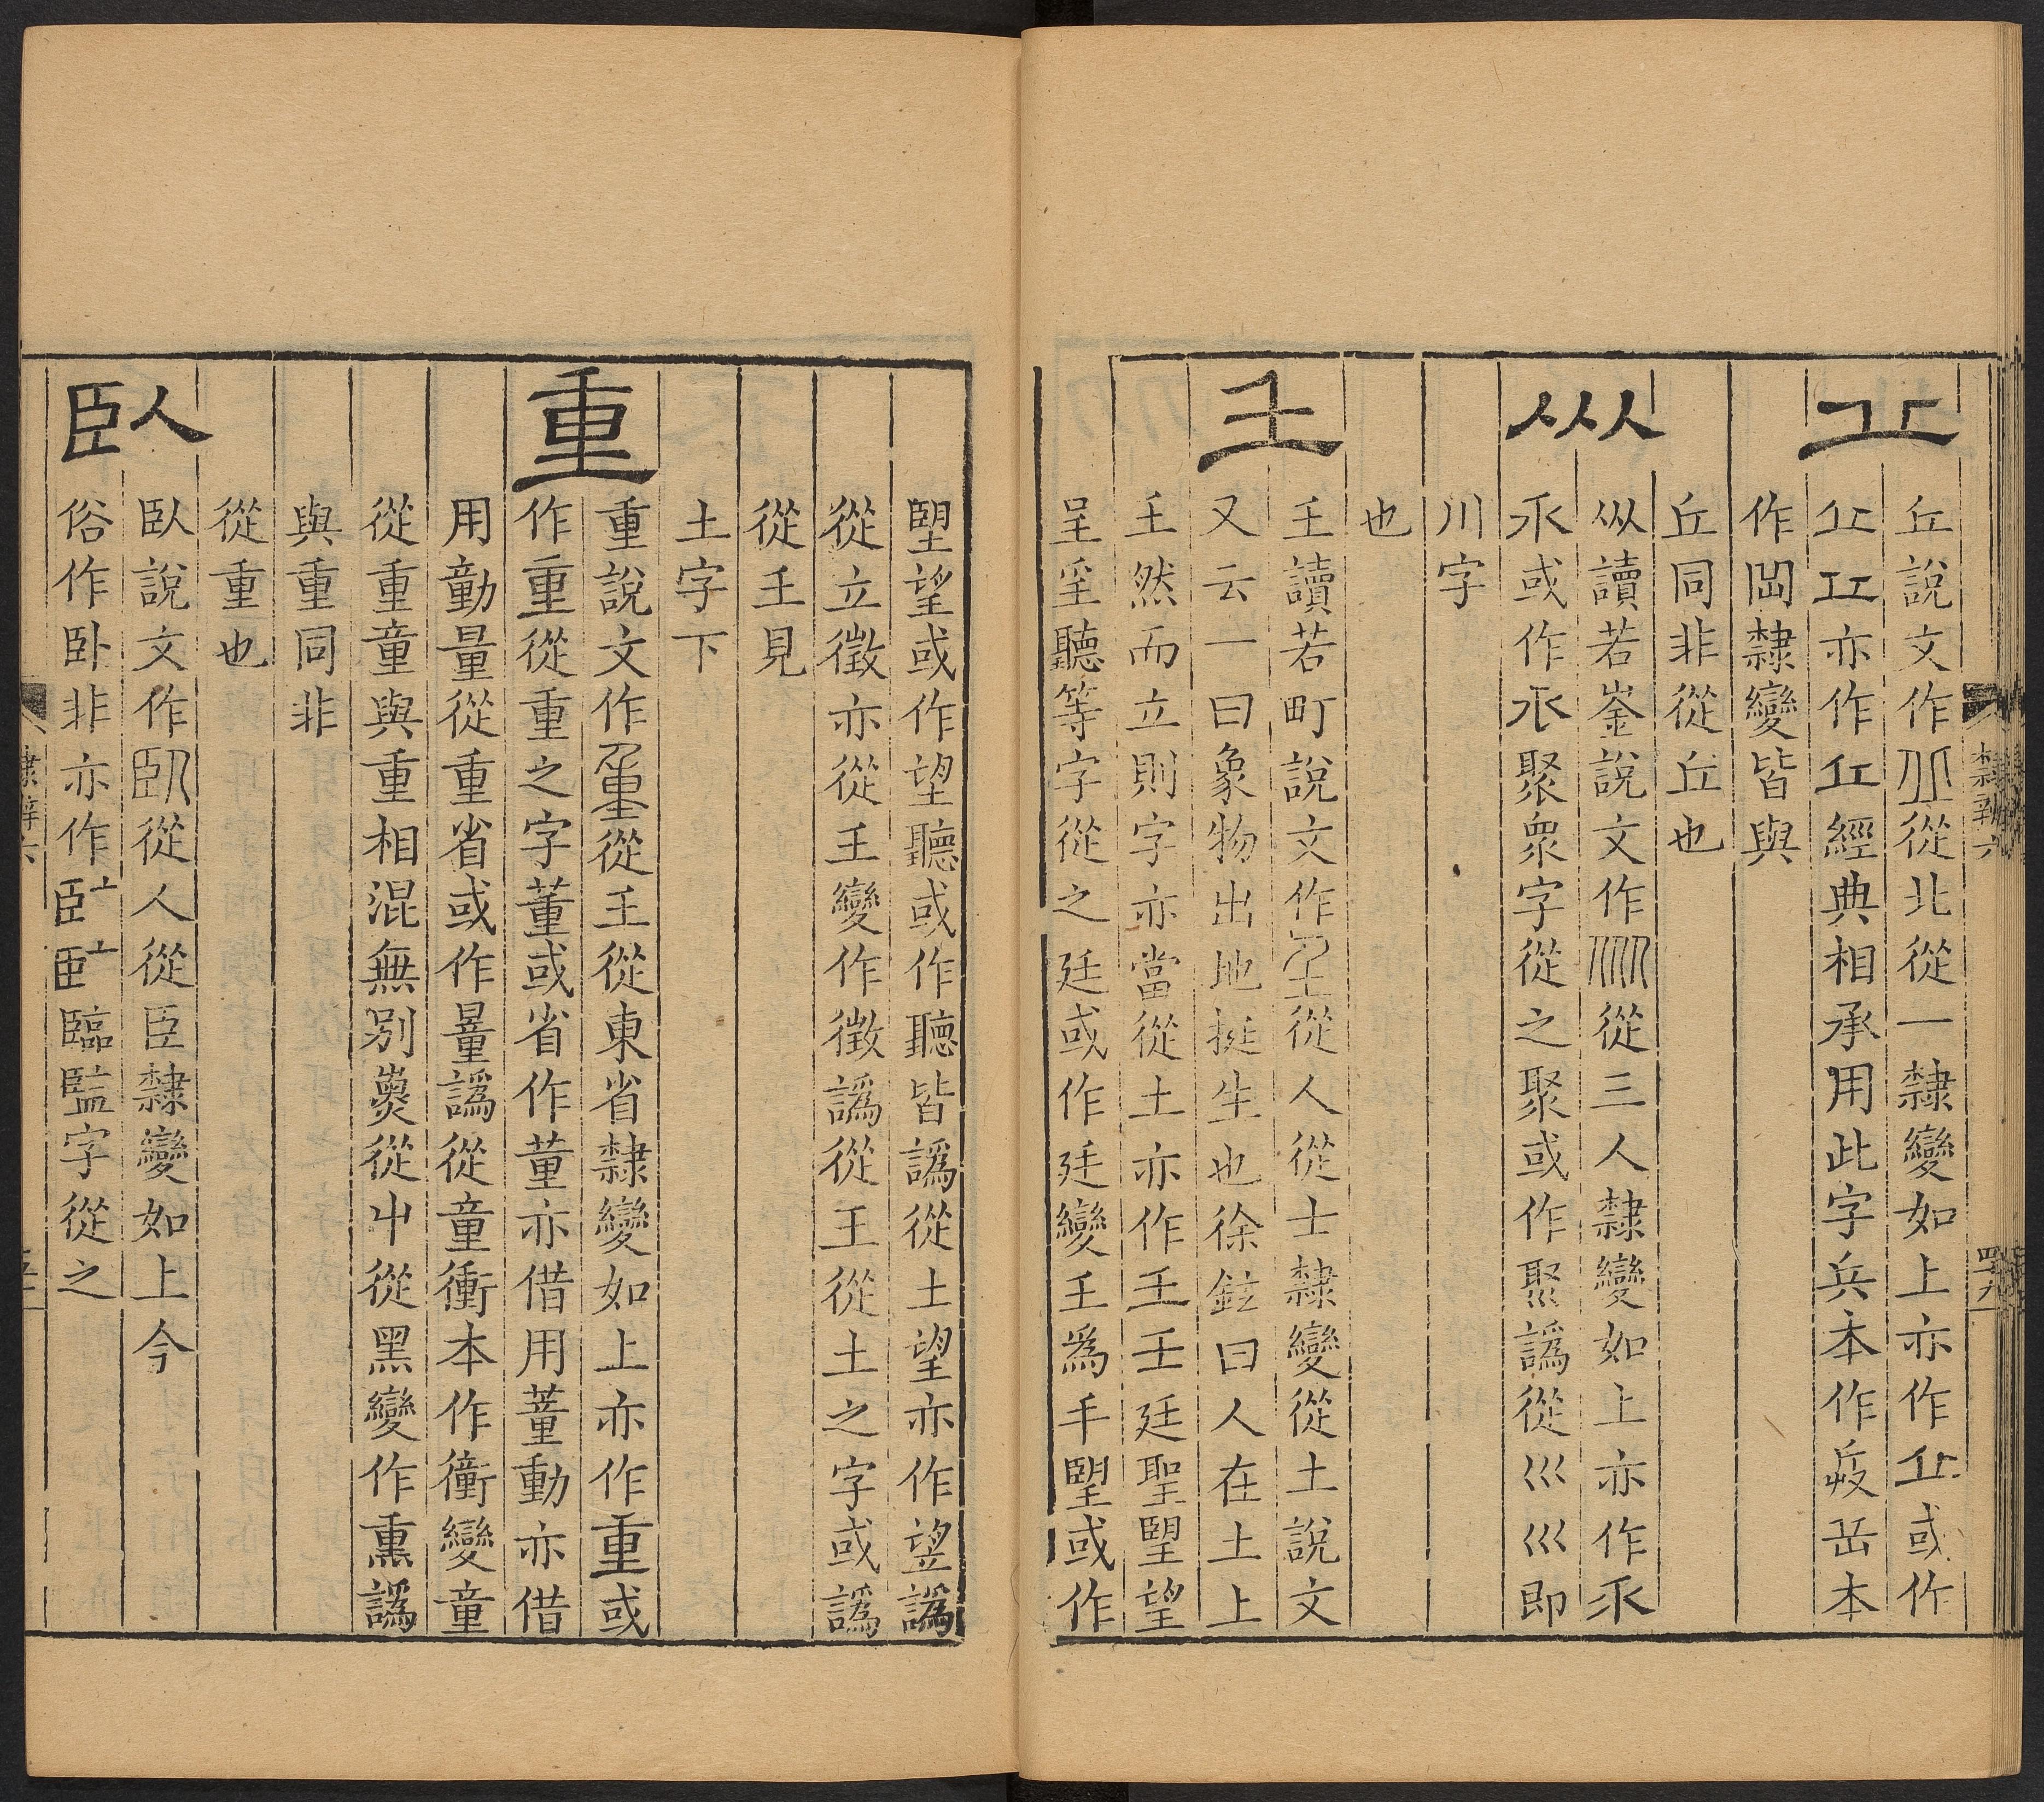 丘
丘說文作𠀌從北從一隸變如上亦作㐀或作
㐀亦作經典相承用此字兵本作㞢本
作罡隸變皆與
丘同非從丘也
㐺
㐺讀若崟說文作㐺從三人隸變如上亦作乑
乑或作𠂢聚衆字從之聚或作譌從巛巛即
川字
也
𡈼
𡈼讀若町說文作𡈼從人從士隸變從土說文
又云一曰象物出地挺生也徐鉉曰人在土上
𡈼然而立則字亦當從土亦作𡈼壬廷聖朢望
呈𦣻聽等字從之廷或作廷變𡈼爲手朢或作
隸辨六
四十九
朢望或作望聽或作聽皆譌從土望亦作望譌
從立徵亦從𡈼變作徵譌從王從土之字或譌
從𡈼見
土字下
重
重說文作𡍺從𡈼從東省隸變如上亦作重或
作重從重之字董或省作董亦借用蕫動亦借
用勭量從重省或作量譌從童衝本作衝變童
從重童與重相混無別爂從屮從黑變作熏譌
與重同非
從重也
臥
臥說文作臥從人從臣隸變如上今
俗作卧非亦作臨監字從之
隸辨六